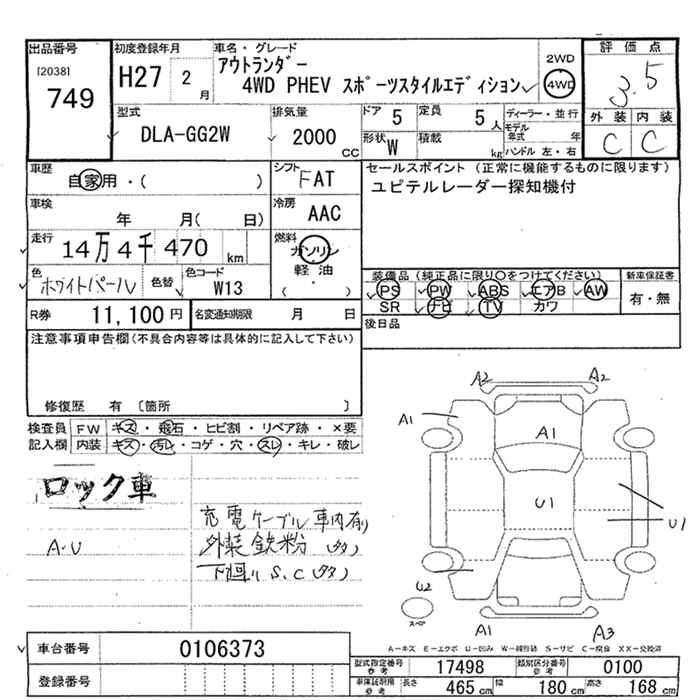 出品番号 初度登録年月 車名・グレード 評価点
[2038] 749 H27 2月 アウトランダー 2WD
4WD PHEV スポーツスタイルエディション 4WD 3.5
型式 排気量 ドア 5 定員 5人 ディーラー・並行 外装 内装
DLA-GG2W 2000CC 形状 W 積載 kg モデル年式 年 C C
ハンドル 左・右
車歴 自家用・( ) シフト FAT セールスポイント (正常に機能するものに限ります)
ユピテルレーダー探知機付
車検 年 月( 日) 冷房 AAC
走行 14万4千470km 燃料 ガソリン
軽油
( )
色 ホワイトパール 色替 色コード W13 装備品(純正品に限り○をつけてください) 新車保証書
PS PW ABS エアB AW 有・無
R券 11,100円 名変通知期限 月 日 SR ナビ TV カワ
注意事項申告欄(不具合内容等は具体的に記入して下さい) 後日品
修復歴 有 〔箇所 〕
検査員 FW キズ・飛石・ヒビ割・リペア跡・×要
記入欄 内装 キズ・汚レ・コゲ・穴・スレ・キレ・破レ
A2 A2
A1 A1
ロック車
A・U
充電ケーブル車内有り
外装鉄粉(多)
下回りS.C(多)
U1 U1
U2
スペア
A1 A3
A-キズ E-エクボ U-凹み W-補修跡 S-サビ C-腐食 XX-交換済
車台番号 0106373
登録番号
型式指定番号 参考 17498 類別区分番号 参考 0100
車庫証明用 参考 長さ 465cm 幅 180cm 高さ 168cm